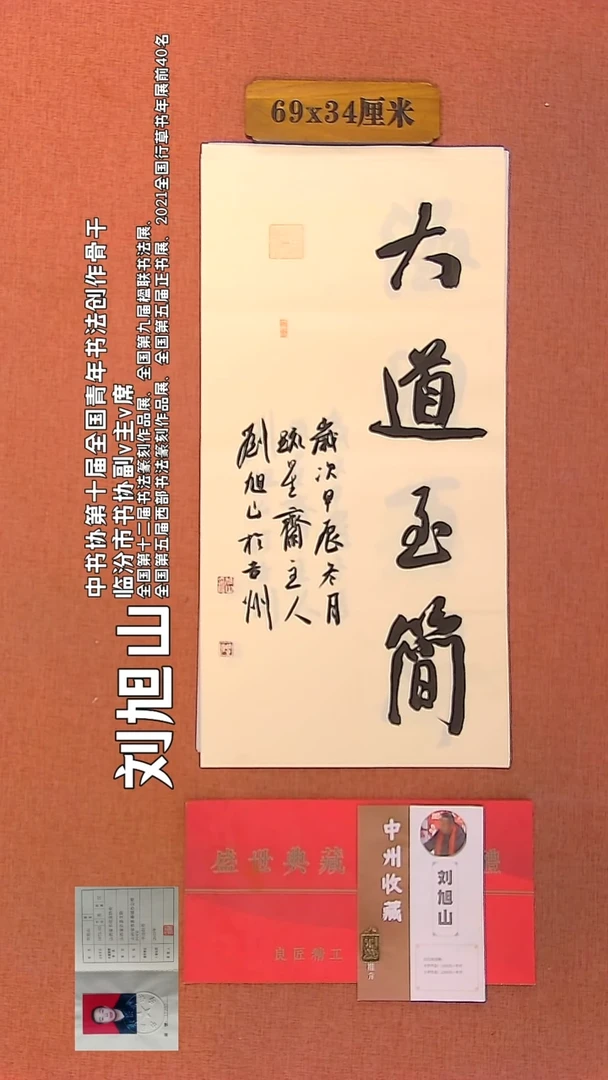 69x34厘米
大道至簡
歲次甲辰冬月
疏星齋主人
劉旭山於吉州
刘旭山
中书协第十届全国青年书法创作骨干
临汾市书协副v主v席
全国第十二届书法篆刻作品展、全国第九届楹联书法展、
全国第五届西部书法篆刻作品展、全国第五届正书展、2021全国行草书年展前40名
盛世典藏
禮
良匠精工
中州收藏
推介
刘旭山